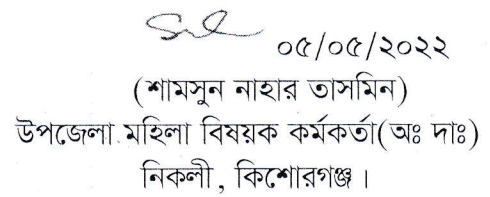 ০৫/০৫/২০২২
(শামসুন নাহার তাসমিন)
উপজেলা মহিলা বিষয়ক কর্মকর্তা(অঃ দাঃ)
নিকলী, কিশোরগঞ্জ।